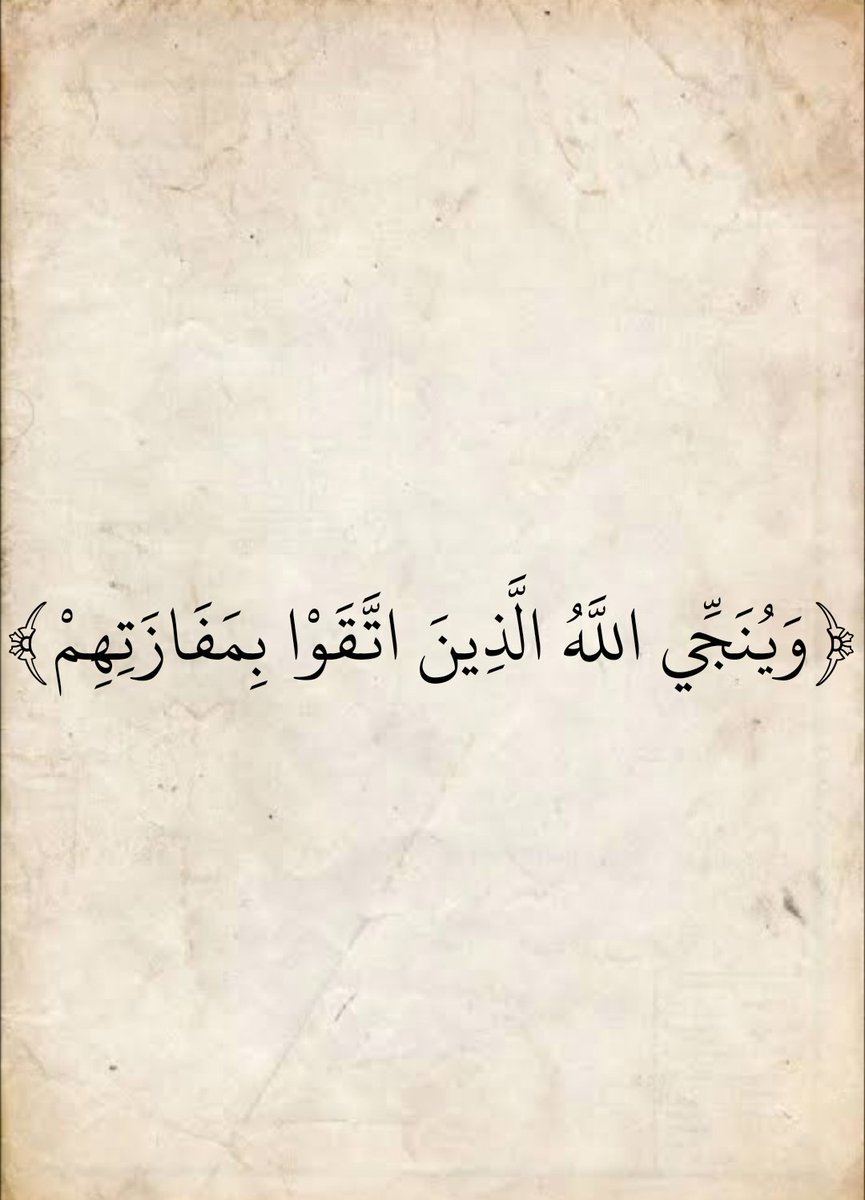 ﴿وَيُنَجِّي اللَّهُ الَّذِينَ اتَّقَوْا بِمَفَازَتِهِمْ﴾